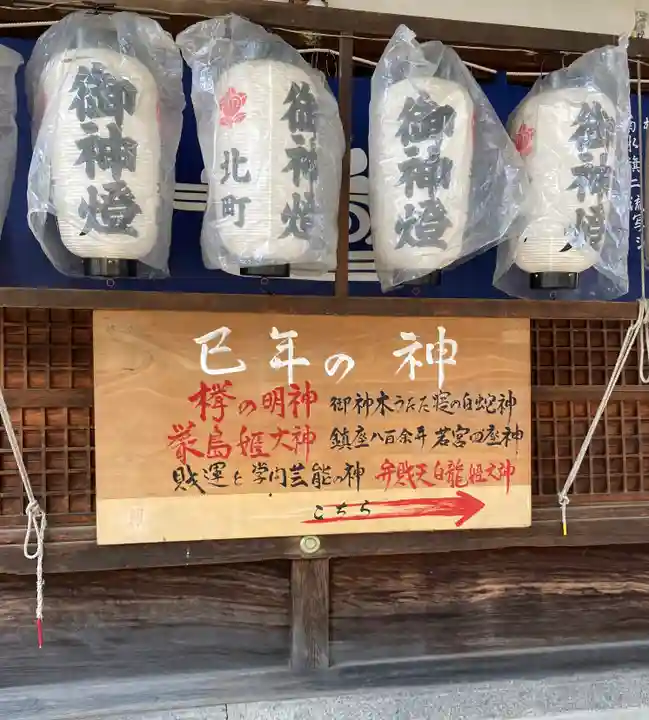 御神燈
御神燈
北町
御神燈
御神燈
巳年の神
欅の明神 御神木うたた寝の白蛇神
厳島姫大神 鎮座八百余年 若宮四座神
財運と学問芸能の神 弁財天白龍姫大神
こちら